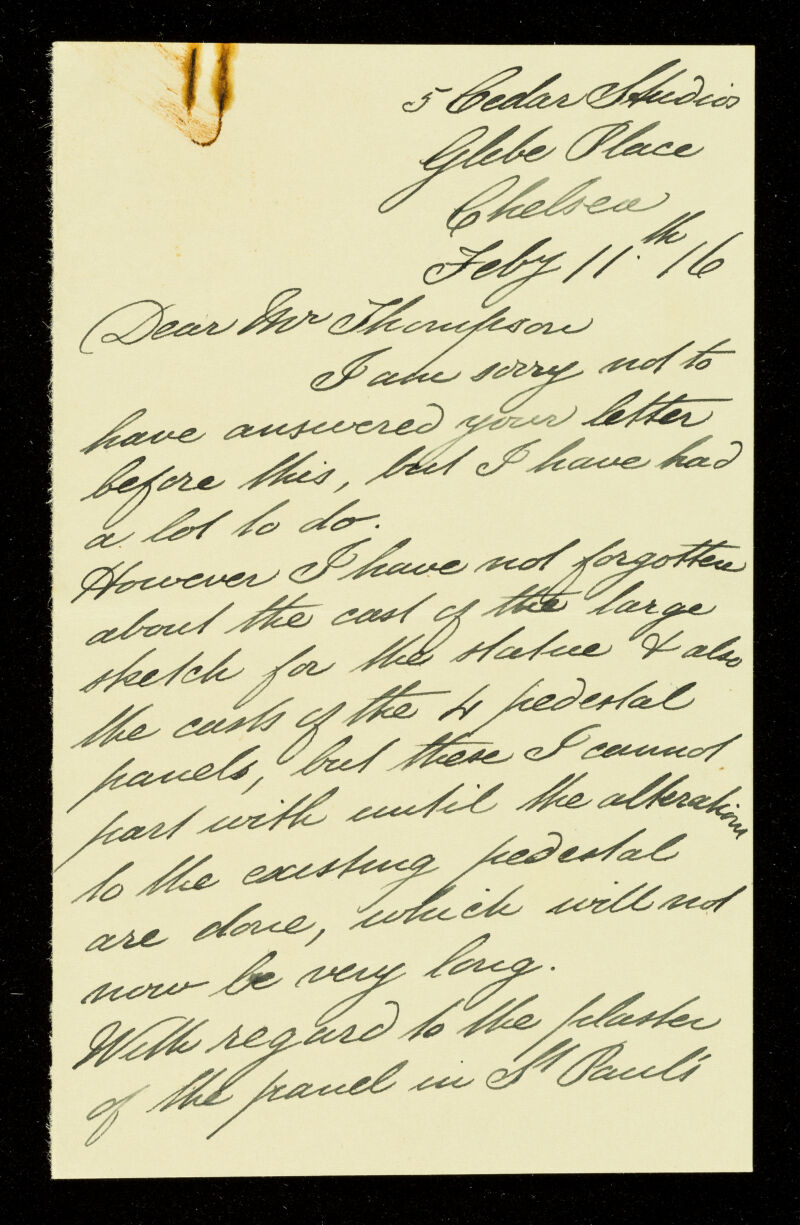 5 Cedar Studios
Glebe Place
Chelsea
Feby 11.th 16
Dear Mr Thompson
I am sorry not to
have answered your letter
before this, but I have had
a lot to do.
However I have not forgotten
about the cast of the large
sketch for the statue & also
the casts of the 4 pedestal
panels, but these I cannot
part with until the alterations
to the existing pedestal
are done, which will not
now be very long.
With regard to the plaster
of the panel in St Paul's